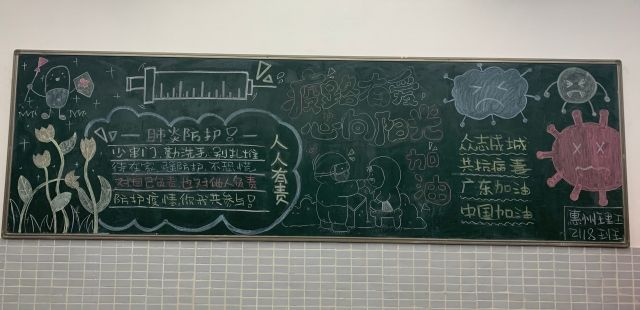 肺炎防护
少出门,勤洗手,别扎堆
待在家,戴防护,不恐慌
对自己负责也对他人负责
防护疫情你我共参与
人人有责
疫路有爱
心向阳光
加油
众志成城
共抗病毒
广东加油
中国加油
惠州理工
2118班